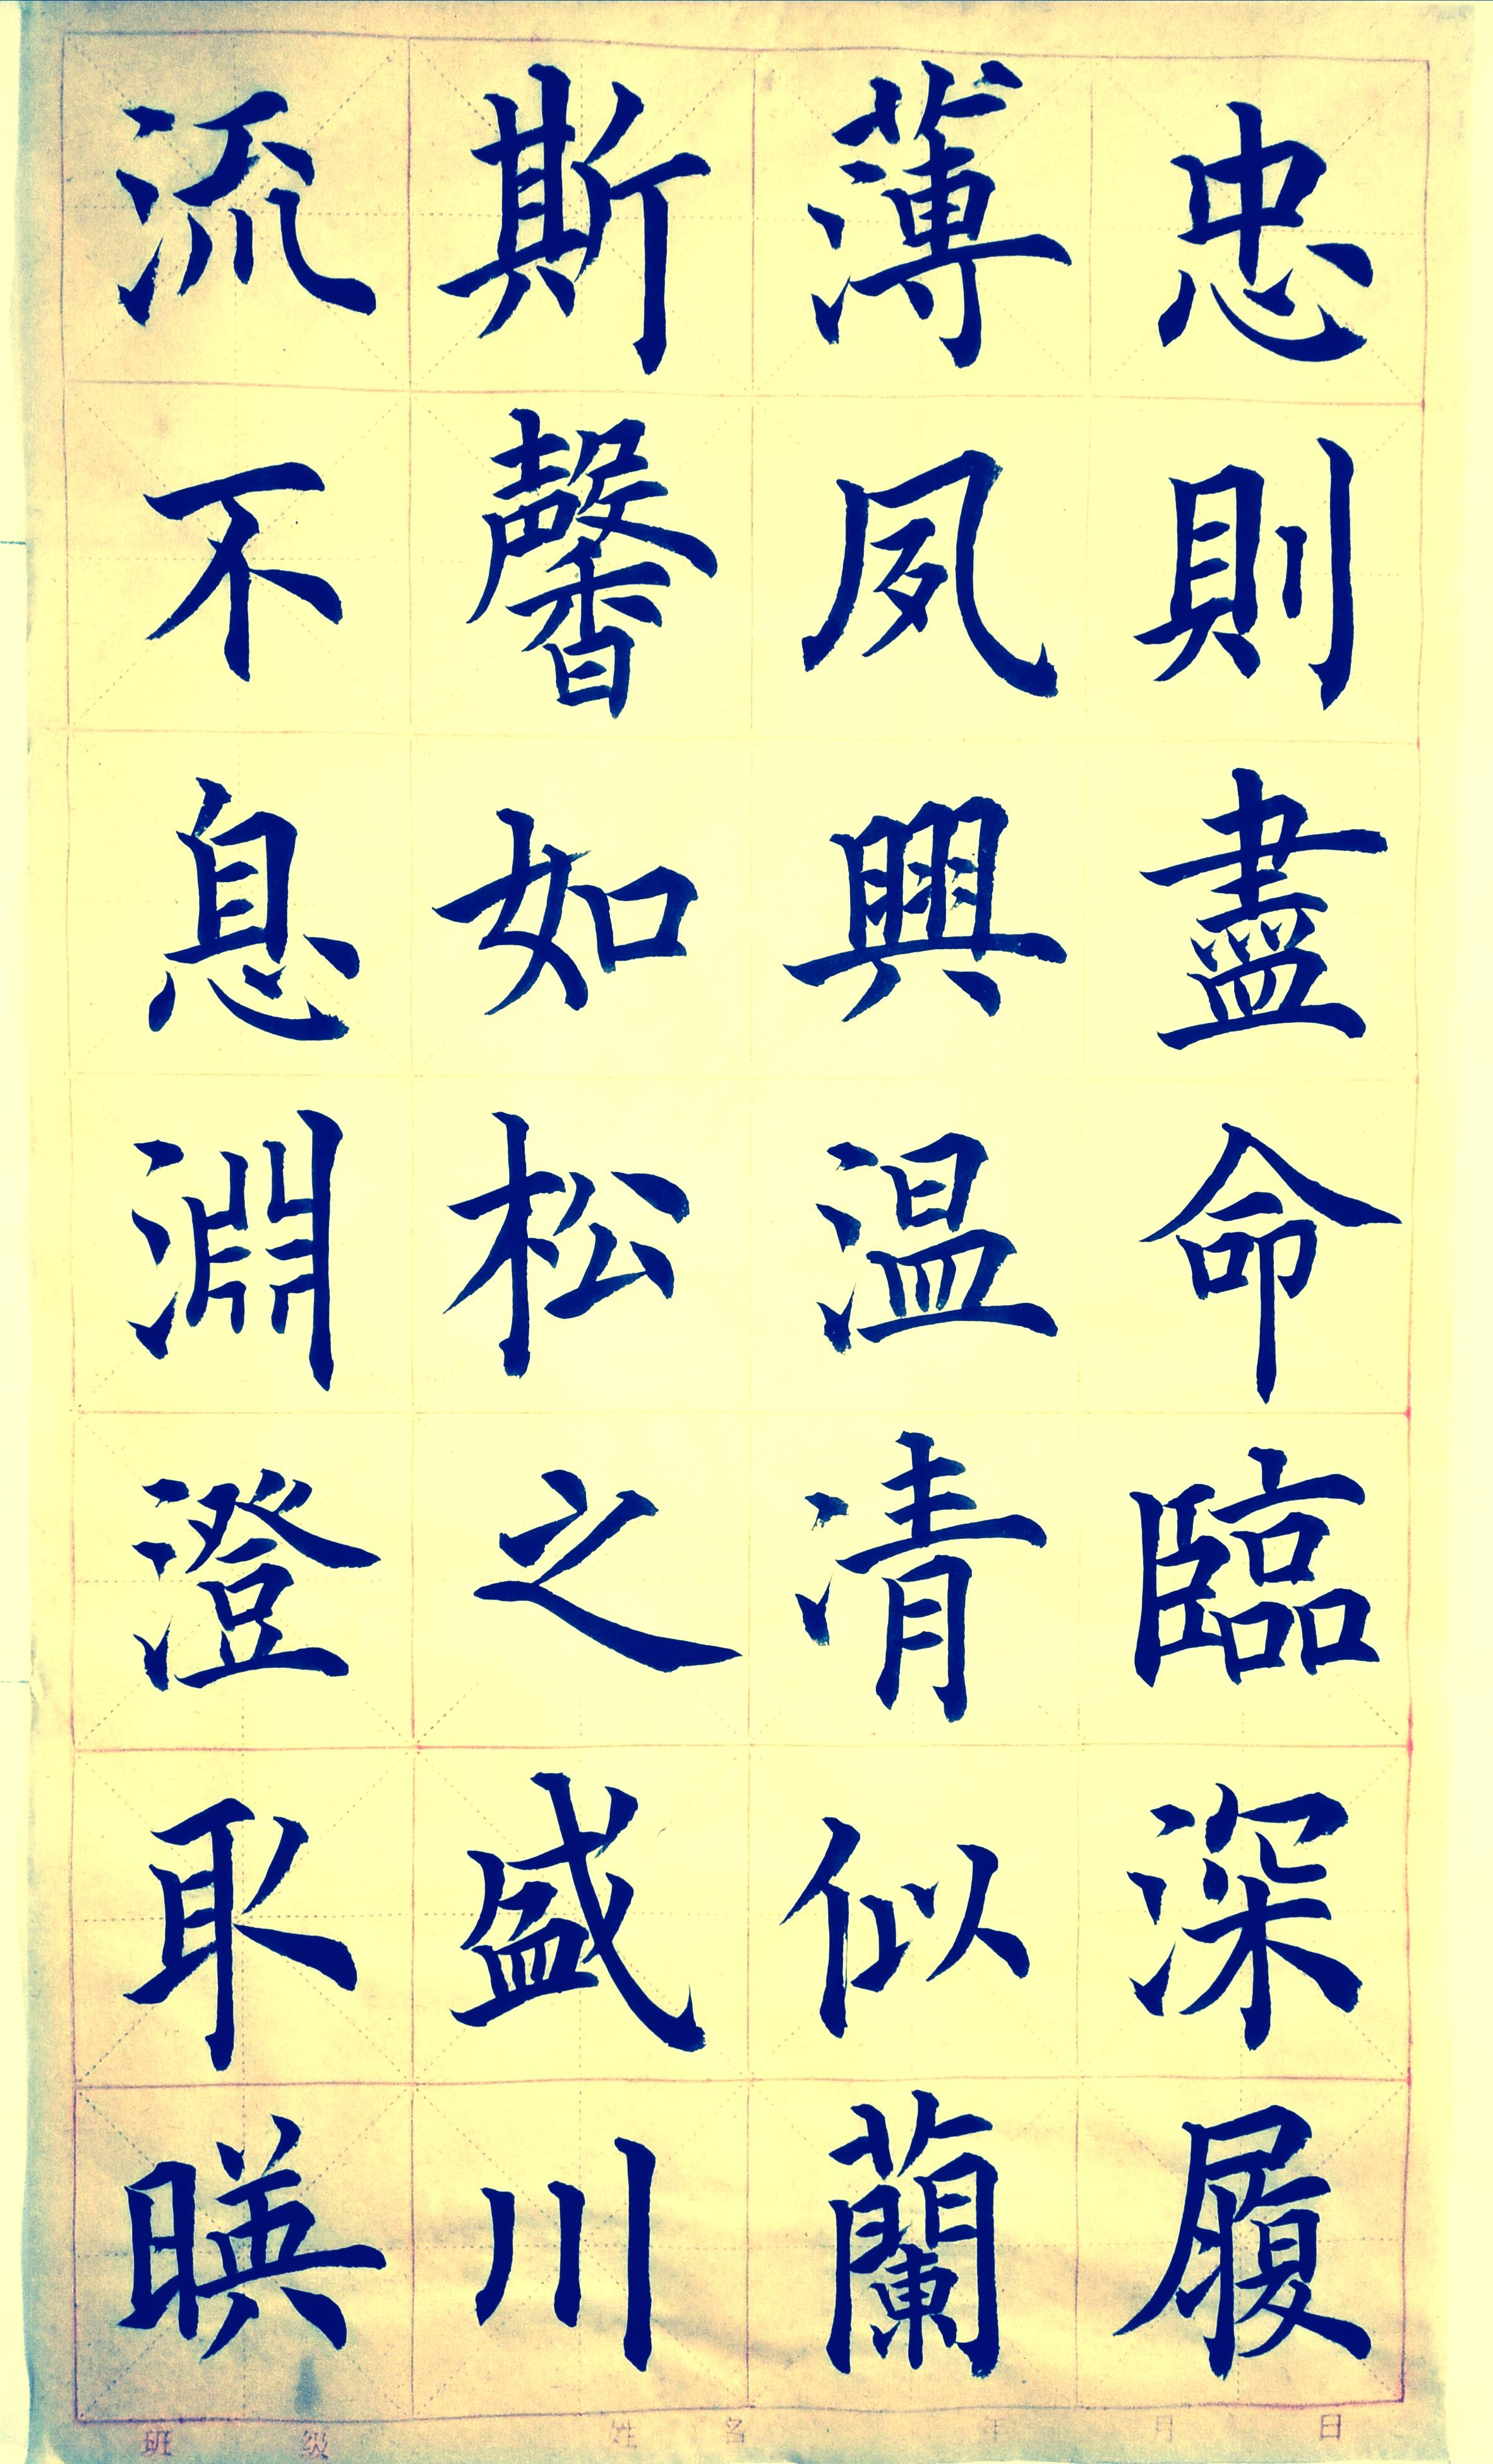 忠則盡命臨深履
薄夙興温凊似蘭
斯馨如松之盛川
流不息淵澄取暎
班 级 姓 名 年 月 日